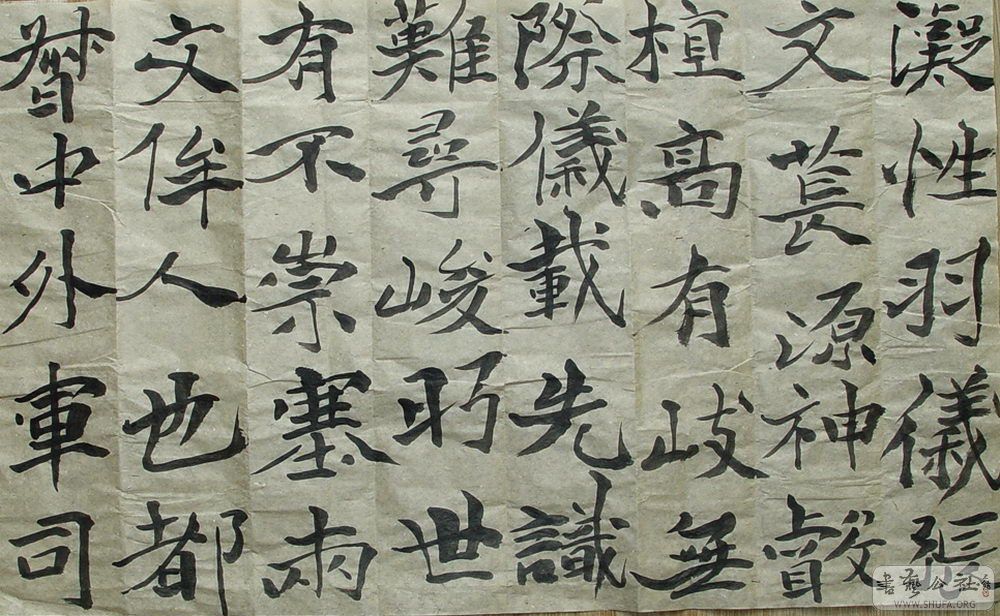 凝性羽儀張
文萇源神叡
高有岐無
際儀載先識
難尋峻世
有不崇塞兩
文侔人也都
督中外軍司
書藝公社
WWW.SHUFA.ORG